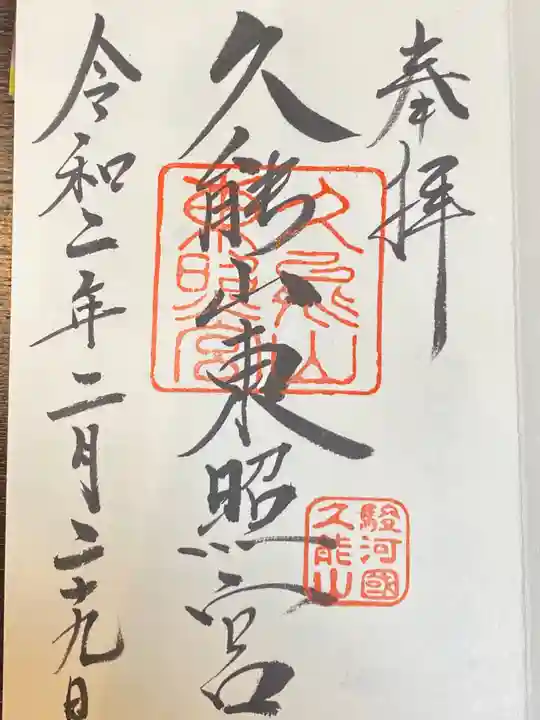 奉拝
久能山東照宮
久能山
東照宮
駿河國
久能山
令和二年二月二十九日